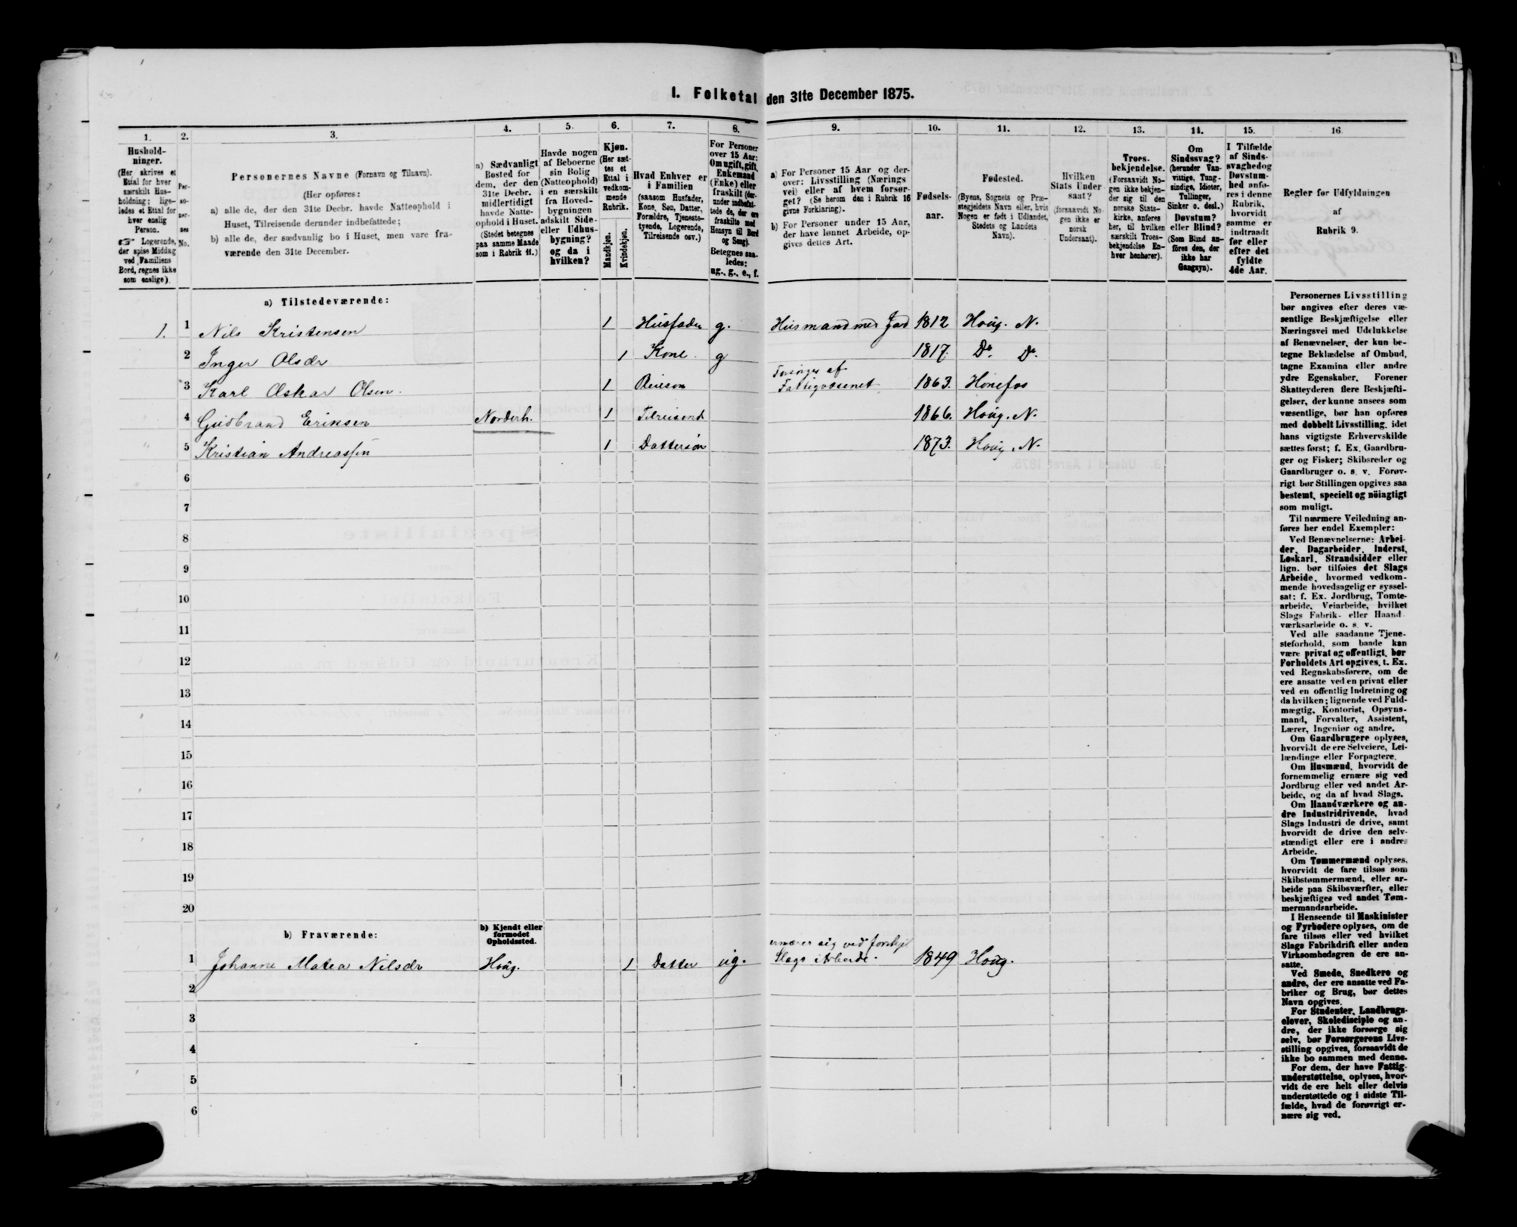 I. Folketal den 31te December 1875.
1. 2. 3. 4. 5. 6. 7. 8. 9. 10. 11. 12. 13. 14. 15. 16.
Hushold-
ninger.
(Her skrives et
Ettal for hver
særskilt Hus-
holdning; lige-
ledes et Ettal for
hver enslig
Person.
Logerende,
der spise Middag
ved Familiens
Bord, regnes ikke
som enslige).
Per-
so-
ner-
nes
No.
Personernes Navne (Fornavn og Tilnavn).
(Her opføres:
a) alle de, der den 31te Decbr. havde Natteophold i
Huset, Tilreisende derunder indbefattede;
b) alle de, der sædvanlig bo i Huset, men vare fra-
værende den 31te December.
a) Sædvanligt
Bosted for
dem, der den
31te Decbr.
midlertidigt
havde Natte-
ophold i Huset.
(Stedet betegnes
paa samme Maade
som i Rubrik 11.)
Havde nogen
af Beboerne
sin Bolig
(Natteophold)
i en særskilt
fra Hoved-
bygningen
adskilt Side-
eller Udhus-
bygning?
og da i
hvilken?
Kjøn.
(Her sæt-
tes et
Ettal i
vedkom-
mende
Rubrik.
Mandkjøn.
Kvindekjøn.
Hvad Enhver er
i Familien
(saasom Husfader,
Kone, Søn, Datter,
Forældre, Tjeneste-
tyende, Logerende,
Tilreisende osv.)
For Personer
over 15 Aar:
Om ugift, gift,
Enkemand
(Enke) eller
fraskilt (der-
under indbefat-
tede de, der ere
fraskilte med
Hensyn til Bord
og Seng).
Betegnes saa-
ledes:
ug., g., e., f.
a) For Personer 15 Aar og der-
over: Livsstilling (Nærings-
vei) eller af hvem forsør-
get? (Se herom den i Rubrik 16
givne Forklaring).
b) For Personer under 15 Aar,
der have lønnet Arbeide, op-
gives dettes Art.
Fødsels-
aar.
Fødested.
(Byens, Sognets og Præ-
stegjeldets Navn eller, hvis
Nogen er født i Udlandet,
Stedets og Landets
Navn).
Hvilken
Stats Under-
saat?
(forsaavidt No-
gen ikke er
norsk
Undersaat).
Troes-
bekjendelse.
(Forsaavidt No-
gen ikke bekjen-
der sig til den
norske Stats-
kirke, anføres
her, til hvilken
særskilt Troes-
bekjendelse En-
hver henhører).
Om
Sindssvag?
(herunder Van-
vittige, Tung-
sindige, Idioter,
Tullinger,
Sinker o. desl.)
Døvstum?
eller Blind?
(Som Blind an-
føres den, der
ikke har
Gangsyn).
I Tilfælde
af Sinds-
svaghed og
Døvstum-
hed anfø-
res i denne
Rubrik,
hvorvidt
samme er
indtraadt
før eller
efter det
fyldte
4de Aar.
Regler for Udfyldningen
af
Rubrik 9.
a) Tilstedeværende:
1. 1 Nils Kristensen 1 Husfader g. Husmand med Jord 1812 Houg. N.
2 Inger Olsdr 1 Kone. g 1817. Do. Do.
3 Karl Oskar Olsen. 1 Pleiesøn Forsørges af Fattigvæsenet 1863. Hønefos
4 Gudbrand Eriksen Norderh. 1 Tilreisend 1866. Houg. N.
5 Kristian Andreassen 1 Dattersøn 1873. Houg. N.
6
7
8
9
10
11
12
13
14
15
16
17
18
19
20
b) Fraværende:
b) Kjendt eller
formodet
Opholdssted.
1 Johanne Matea Nilsdr Houg. 1 Datter ug. ernærer sig ved forskjel Slags Arbeide. 1849 Houg.
2
3
4
5
6
Personernes Livsstilling
bør angives efter deres væ-
sentlige Beskjæftigelse eller
Næringsvei med Udelukkelse
af Benævnelser, der kun be-
tegne Beklædelse af Ombud,
tagne Examina eller andre
ydre Egenskaber. Forener
Skatteyderen flere Beskjæfti-
gelser, der kunne ansees som
væsentlige, bør han opføres
med dobbelt Livsstilling, idet
hans vigtigste Erhvervskilde
sættes først; f. Ex. Gaardbru-
ger og Fisker; Skibsreder og
Gaardbruger o. s. v. Forøv-
rigt bør Stillingen opgives saa
bestemt, specielt og nøiagtigt
som muligt.
Til nærmere Veiledning an-
føres her endel Exempler:
Ved Benævnelserne: Arbei-
der, Dagarbeider, Inderst,
Løskarl, Strandsidder eller
lign. bør tilføies det Slags
Arbeide, hvormed vedkom-
mende hovedsagelig er syssel-
sat; f. Ex. Jordbrug, Tomte-
arbeide, Veiarbeide, hvilket
Slags Fabrik- eller Haand-
værksarbeide o. s. v.
Ved alle saadanne Tjene-
steforhold, som baade kan
være privat og offentligt, bør
Forholdets Art opgives, t. Ex.
ved Regnskabsførere, om de
ere ansatte ved en privat eller
ved en offentlig Indretning og
da hvilken; lignende ved Fuld-
mægtig, Kontorist, Opsyns-
mand, Forvalter, Assistent,
Lærer, Ingeniør og andre.
Om Gaardbrugere oplyses,
hvorvidt de ere Selveiere, Lei-
lændinge eller Forpagtere.
Om Husmænd, hvorvidt de
fornemmelig ernære sig ved
Jordbrug eller ved andet Ar-
beide, og da af hvad Slags.
Om Haandværkere og an-
dre Industridrivende, hvad
Slags Industri de drive, samt
hvorvidt de drive den selv-
stændigt eller ere i andres
Arbeide.
Om Tømmermænd oplyses,
hvorvidt de fare tilsøs som
Skibstømmermænd, eller ar-
beide paa Skibsværfter, eller
beskjæftiges ved andet Tøm-
mermandsarbeide.
I Henseende til Maskinister
og Fyrbødere oplyses, om de
fare tilsøs eller ved hvilket
Slags Fabrikdrift eller anden
Virksomhedsgren de ere an-
satte.
Ved Smede, Snedkere og
andre, der ere ansatte ved Fa-
briker og Brug, bør dettes
Navn opgives.
For Studenter, Landbrugs-
elever, Skoledisciple og an-
dre, der ikke forsørge sig
selv, bør Forsørgerens Livs-
stilling opgives, forsaavidt de
ikke bo sammen med denne.
For dem, der have Fattig-
understøttelse, oplyses, hvor-
vidt de ere helt eller delvis
understøttede og i sidste Til-
fælde, hvad de forøvrigt er-
nære sig ved.